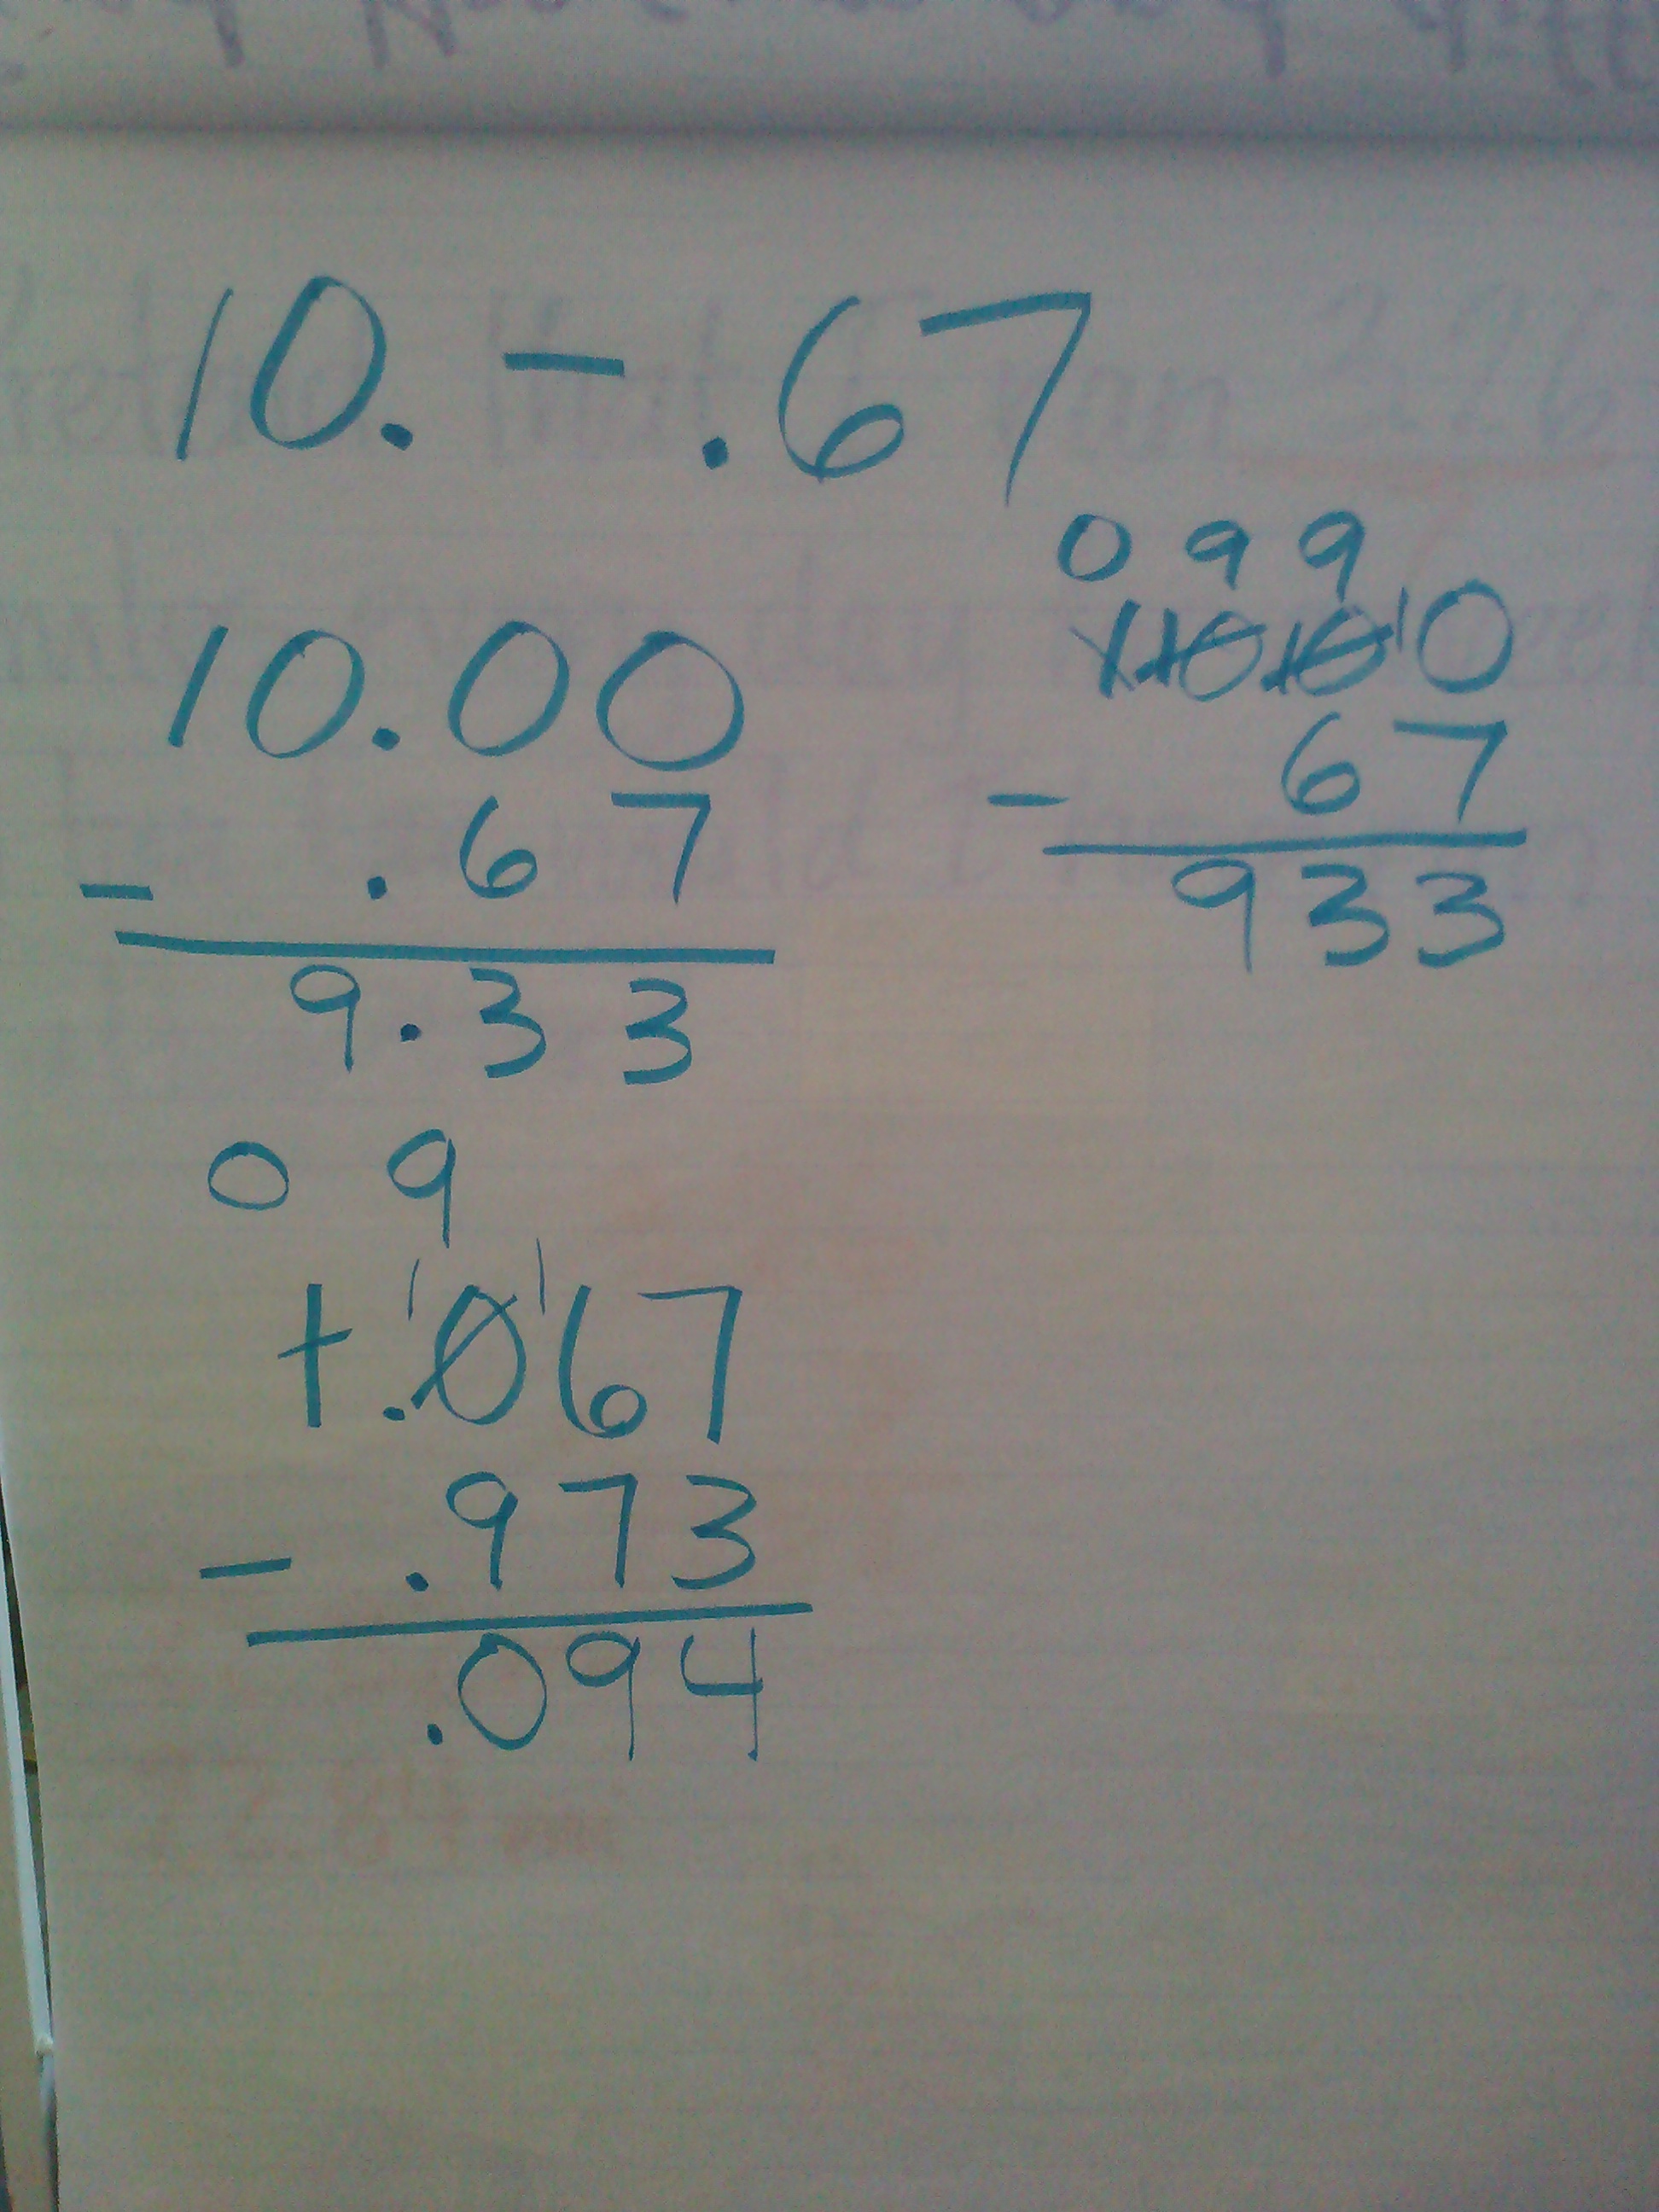 10. - .67
10.00
- .67
9.33
0 9 9
1 10 10 10
- 67
933
0 9
1.067
- .973
.094